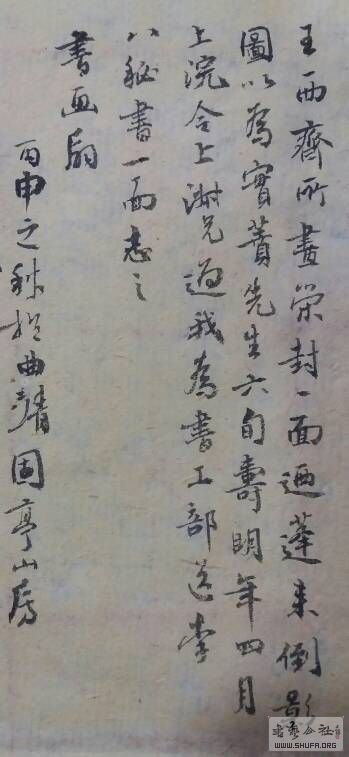 王西齋所畫榮封一面迺蓬萊倒影
圖以為實蕡先生六旬壽明年四月
上浣合上澍兄過我為書工部送李
八秘書一面志之
書画扇
丙申之秋於曲靖固亭山房
书艺公社
WWW.SHUFA.ORG